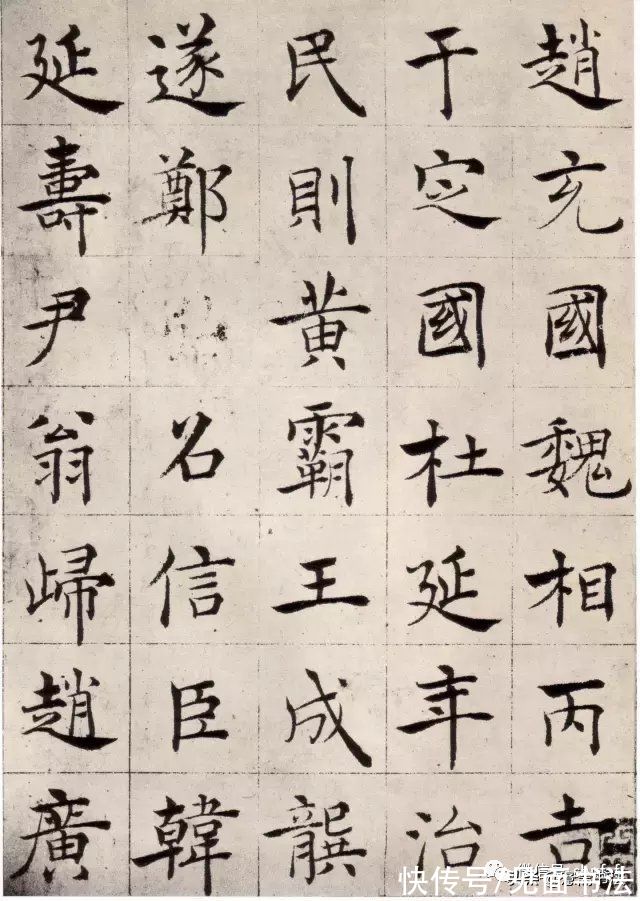 趙充國魏相丙吉
于定國杜延年治
民則黃霸王成龔
遂鄭召信臣韓
延壽尹翁歸趙廣
快传号/见面书法